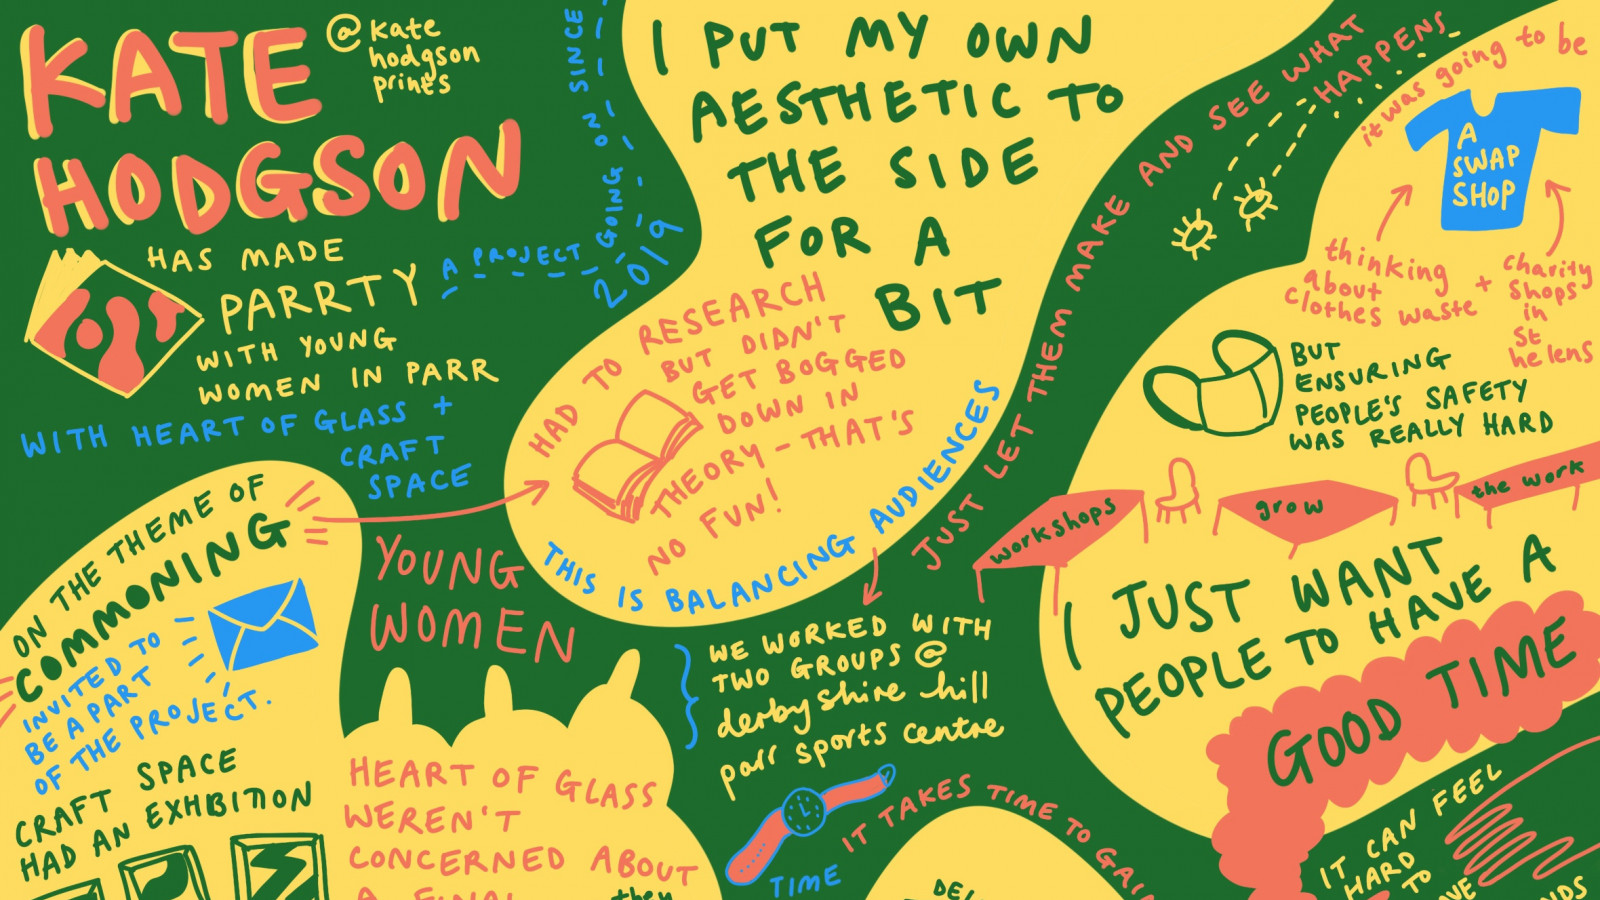 KATE
HODGSON
@kate
hodgson
prints
HAS MADE
PARRTY
WITH YOUNG
WOMEN IN PARR
A PROJECT GOING ON SINCE
2019
WITH HEART OF GLASS +
CRAFT
SPACE
ON THE THEME OF
COMMONING
INVITED TO
BE A PART
OF THE PROJECT.
CRAFT SPACE
HAD AN EXHBITION
YOUNG
WOMEN
HEART OF GLASS
WEREN'T
CONCERNED ABOUT
A FINAL
they
I PUT MY OWN
AESTHETIC TO
THE SIDE
FOR A
BIT
HAD TO RESEARCH
BUT DIDN'T
GET BOGGED
DOWN IN
THEORY - THAT'S
NO FUN!
THIS IS BALANCING AUDIENCES
WE WORKED WITH
TWO GROUPS @
derbyshire hill
parr sports centre
TIME
IT TAKES TIME TO
JUST LET THEM MAKE AND SEE WHAT
HAPPENS
it was going to be
A
SWAP
SHOP
thinking
about
clothes waste
+
charity
shops
in
st
helens
BUT
ENSURING
PEOPLE'S SAFETY
WAS REALLY HARD
workshops
grow
the work
I JUST WANT
PEOPLE TO HAVE A
GOOD TIME
IT CAN FEEL
HARD
TO